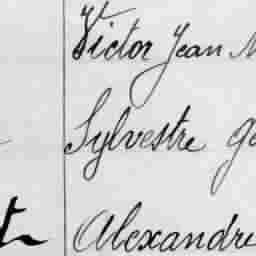 Victor Jean
Sylvestre
Alexandre